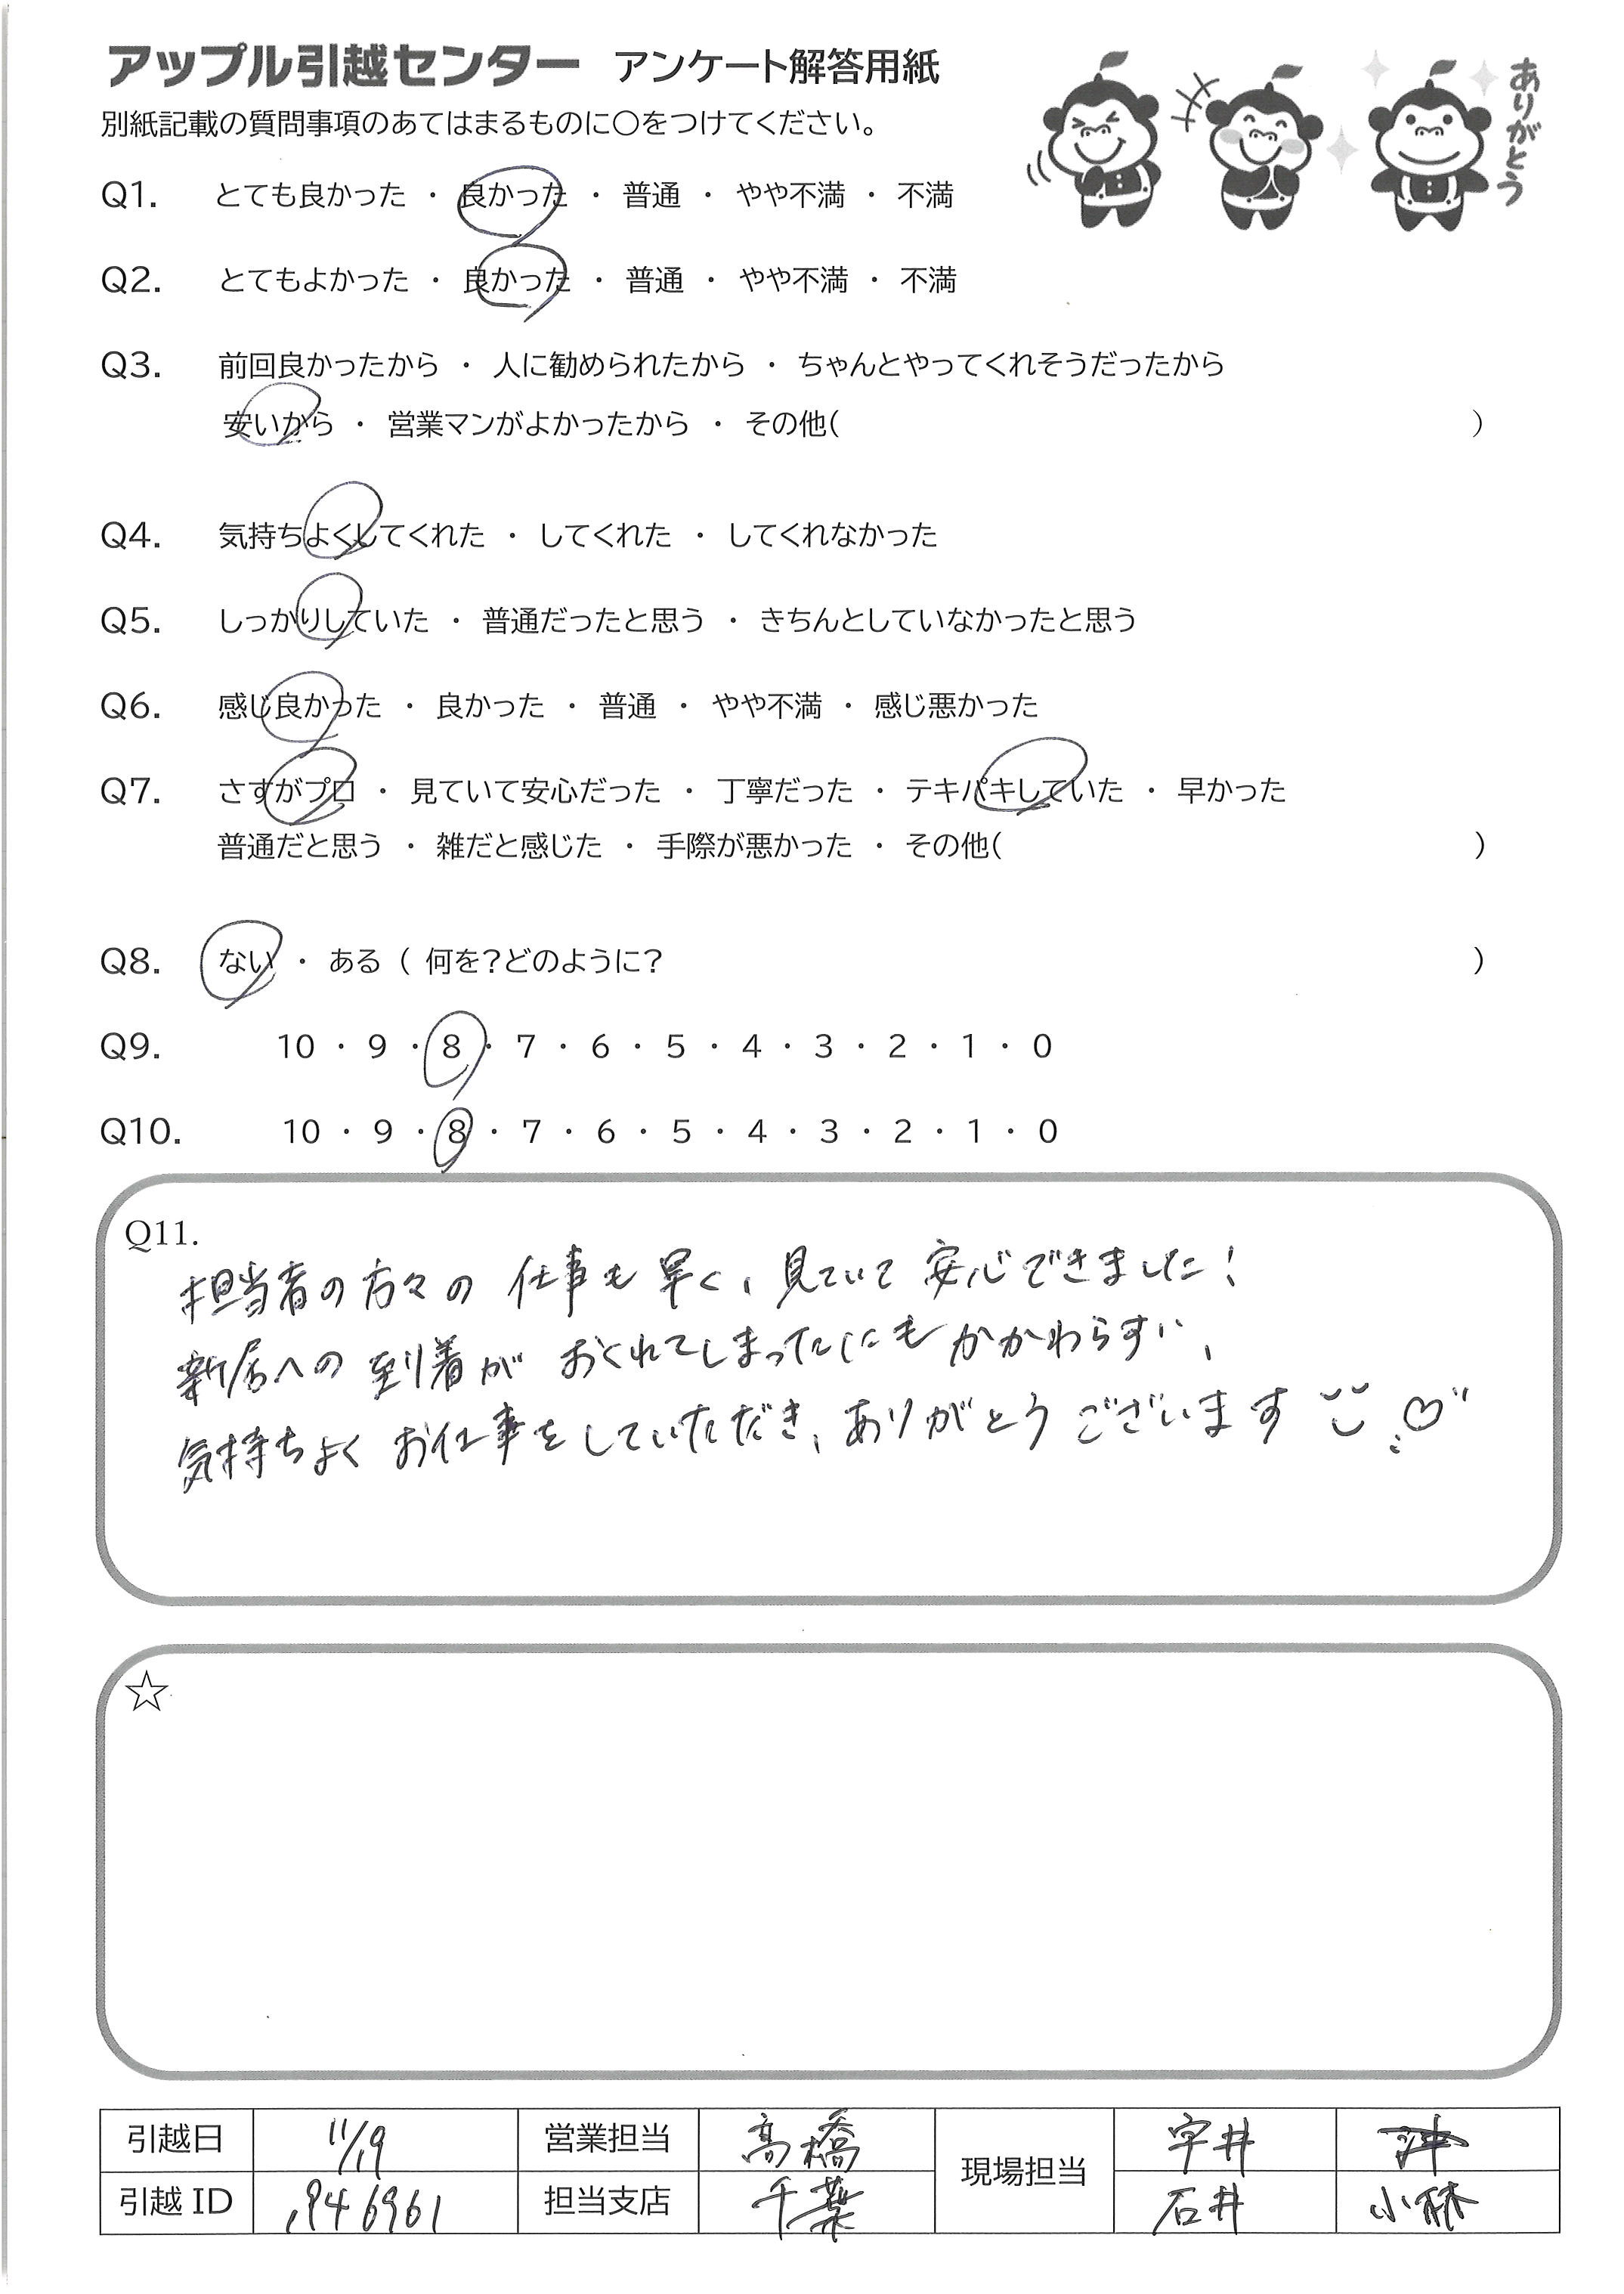 アップル引越センター アンケート解答用紙
ありがとう
別紙記載の質問事項のあてはまるものに〇をつけてください。
Q1. とても良かった ・ 良かった ・ 普通 ・ やや不満 ・ 不満
Q2. とてもよかった ・ 良かった ・ 普通 ・ やや不満 ・ 不満
Q3. 前回良かったから ・ 人に勧められたから ・ ちゃんとやってくれそうだったから
安いから ・ 営業マンがよかったから ・ その他( )
Q4. 気持ちよくしてくれた ・ してくれた ・ してくれなかった
Q5. しっかりしていた ・ 普通だったと思う ・ きちんとしていなかったと思う
Q6. 感じ良かった ・ 良かった ・ 普通 ・ やや不満 ・ 感じ悪かった
Q7. さすがプロ ・ 見ていて安心だった ・ 丁寧だった ・ テキパキしていた ・ 早かった
普通だと思う ・ 雑だと感じた ・ 手際が悪かった ・ その他( )
Q8. ない ・ ある ( 何を?どのように? )
Q9. 10 ・ 9 ・ 8 ・ 7 ・ 6 ・ 5 ・ 4 ・ 3 ・ 2 ・ 1 ・ 0
Q10. 10 ・ 9 ・ 8 ・ 7 ・ 6 ・ 5 ・ 4 ・ 3 ・ 2 ・ 1 ・ 0
Q11.
担当者の方々の 仕事も 早く、見ていて 安心できました!
新居への 到着が おくれてしまったにもかかわらず、
気持ちよく お仕事を していただき、ありがとう ございます
☆
引越日 11/19 営業担当 高橋 現場担当 宇井
引越 ID 1946961 担当支店 千葉 石井 小林